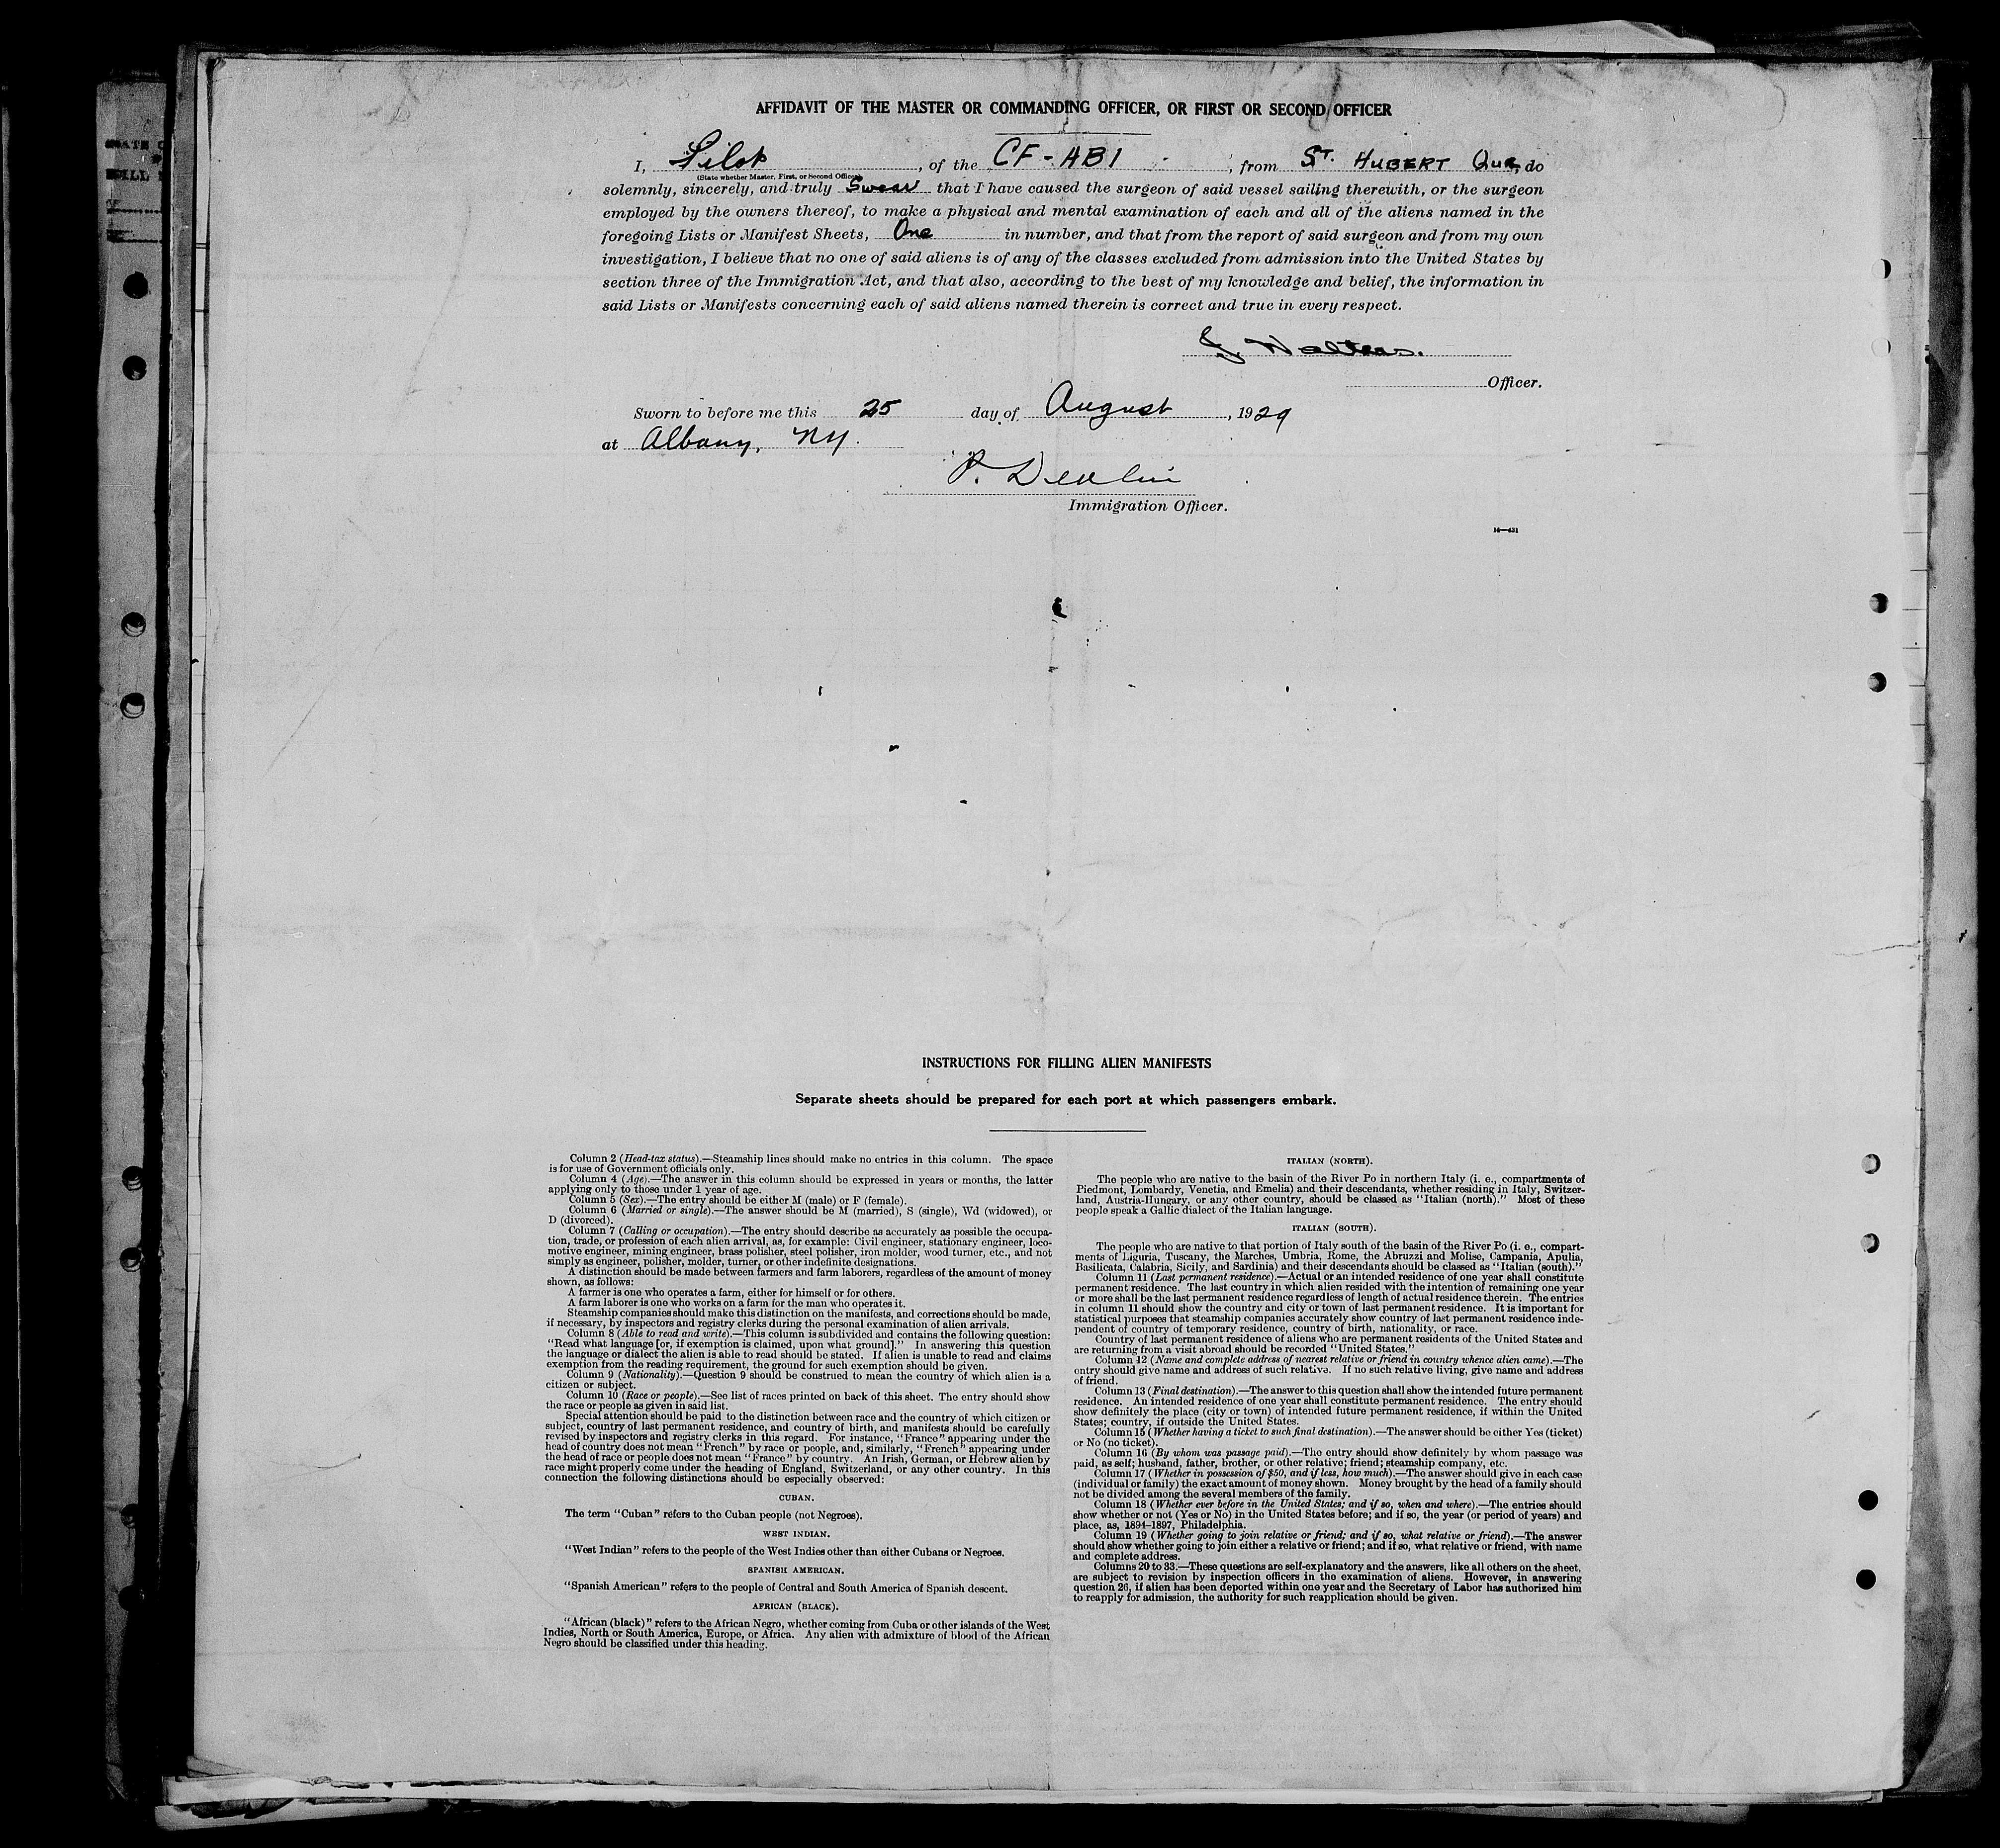 AFFIDAVIT OF THE MASTER OR COMMANDING OFFICER, OR FIRST OR SECOND OFFICER
I, Pilot, of the CF-ABI, from ST. HUBERT QUE, do
(State whether Master, First, or Second Officer)
solemnly, sincerely, and truly Swear that I have caused the surgeon of said vessel sailing therewith, or the surgeon
employed by the owners thereof, to make a physical and mental examination of each and all of the aliens named in the
foregoing Lists or Manifest Sheets, One in number, and that from the report of said surgeon and from my own
investigation, I believe that no one of said aliens is of any of the classes excluded from admission into the United States by
section three of the Immigration Act, and that also, according to the best of my knowledge and belief, the information in
said Lists or Manifests concerning each of said aliens named therein is correct and true in every respect.
Walters.
Officer.
Sworn to before me this 25 day of August, 1929
at Albany, NY.
P. Devlin
Immigration Officer.
INSTRUCTIONS FOR FILLING ALIEN MANIFESTS
Separate sheets should be prepared for each port at which passengers embark.
Column 2 (Head-tax status).—Steamship lines should make no entries in this column. The space
is for use of Government officials only.
Column 4 (Age).—The answer in this column should be expressed in years or months, the latter
applying only to those under 1 year of age.
Column 5 (Sex).—The entry should be either M (male) or F (female).
Column 6 (Married or single).—The answer should be M (married), S (single), Wd (widowed), or
D (divorced).
Column 7 (Calling or occupation).—The entry should describe as accurately as possible the occupa-
tion, trade, or profession of each alien arrival, as, for example: Civil engineer, stationary engineer, loco-
motive engineer, mining engineer, brass polisher, steel polisher, iron molder, wood turner, etc., and not
simply as engineer, polisher, molder, turner, or other indefinite designations.
A distinction should be made between farmers and farm laborers, regardless of the amount of money
shown, as follows:
A farmer is one who operates a farm, either for himself or for others.
A farm laborer is one who works on a farm for the man who operates it.
Steamship companies should make this distinction on the manifests, and corrections should be made,
if necessary, by inspectors and registry clerks during the personal examination of alien arrivals.
Column 8 (Able to read and write).—This column is subdivided and contains the following question:
"Read what language [or, if exemption is claimed, upon what ground]." In answering this question
the language or dialect the alien is able to read should be stated. If alien is unable to read and claims
exemption from the reading requirement, the ground for such exemption should be given.
Column 9 (Nationality).—Question 9 should be construed to mean the country of which alien is a
citizen or subject.
Column 10 (Race or people).—See list of races printed on back of this sheet. The entry should show
the race or people as given in said list.
Special attention should be paid to the distinction between race and the country of which citizen or
subject, country of last permanent residence, and country of birth, and manifests should be carefully
revised by inspectors and registry clerks in this regard. For instance, "France" appearing under the
head of country does not mean "French" by race or people, and, similarly, "French" appearing under
the head of race or people does not mean "France" by country. An Irish, German, or Hebrew alien by
race might properly come under the heading of England, Switzerland, or any other country. In this
connection the following distinctions should be especially observed:
CUBAN.
The term "Cuban" refers to the Cuban people (not Negroes).
WEST INDIAN.
"West Indian" refers to the people of the West Indies other than either Cubans or Negroes.
SPANISH AMERICAN.
"Spanish American" refers to the people of Central and South America of Spanish descent.
AFRICAN (BLACK).
"African (black)" refers to the African Negro, whether coming from Cuba or other islands of the West
Indies, North or South America, Europe, or Africa. Any alien with admixture of blood of the African
Negro should be classified under this heading.
ITALIAN (NORTH).
The people who are native to the basin of the River Po in northern Italy (i. e., compartments of
Piedmont, Lombardy, Venetia, and Emelia) and their descendants, whether residing in Italy, Switzer-
land, Austria-Hungary, or any other country, should be classed as "Italian (north)." Most of these
people speak a Gallic dialect of the Italian language.
ITALIAN (SOUTH).
The people who are native to that portion of Italy south of the basin of the River Po (i. e., compart-
ments of Liguria, Tuscany, the Marches, Umbria, Rome, the Abruzzi and Molise, Campania, Apulia,
Basilicata, Calabria, Sicily, and Sardinia) and their descendants should be classed as "Italian (south)."
Column 11 (Last permanent residence).—Actual or an intended residence of one year shall constitute
permanent residence. The last country in which alien resided with the intention of remaining one year
or more shall be the last permanent residence regardless of length of actual residence therein. The entries
in column 11 should show the country and city or town of last permanent residence. It is important for
statistical purposes that steamship companies accurately show country of last permanent residence inde-
pendent of country of temporary residence, country of birth, nationality, or race.
Country of last permanent residence of aliens who are permanent residents of the United States and
are returning from a visit abroad should be recorded "United States."
Column 12 (Name and complete address of nearest relative or friend in country whence alien came).—The
entry should give name and address of such relative. If no such relative living, give name and address
of friend.
Column 13 (Final destination).—The answer to this question shall show the intended future permanent
residence. An intended residence of one year shall constitute permanent residence. The entry should
show definitely the place (city or town) of intended future permanent residence, if within the United
States; country, if outside the United States.
Column 15 (Whether having a ticket to such final destination).—The answer should be either Yes (ticket)
or No (no ticket).
Column 16 (By whom was passage paid).—The entry should show definitely by whom passage was
paid, as self; husband, father, brother, or other relative; friend; steamship company, etc.
Column 17 (Whether in possession of $50, and if less, how much).—The answer should give in each case
(individual or family) the exact amount of money shown. Money brought by the head of a family should
not be divided among the several members of the family.
Column 18 (Whether ever before in the United States; and if so, when and where).—The entries should
show whether or not (Yes or No) in the United States before; and if so, the year (or period of years) and
place, as, 1894-1897, Philadelphia.
Column 19 (Whether going to join relative or friend; and if so, what relative or friend).—The answer
should show whether going to join either a relative or friend; and if so, what relative or friend, with name
and complete address.
Columns 20 to 33.—These questions are self-explanatory and the answers, like all others on the sheet,
are subject to revision by inspection officers in the examination of aliens. However, in answering
question 26, if alien has been deported within one year and the Secretary of Labor has authorized him
to reapply for admission, the authority for such reapplication should be given.